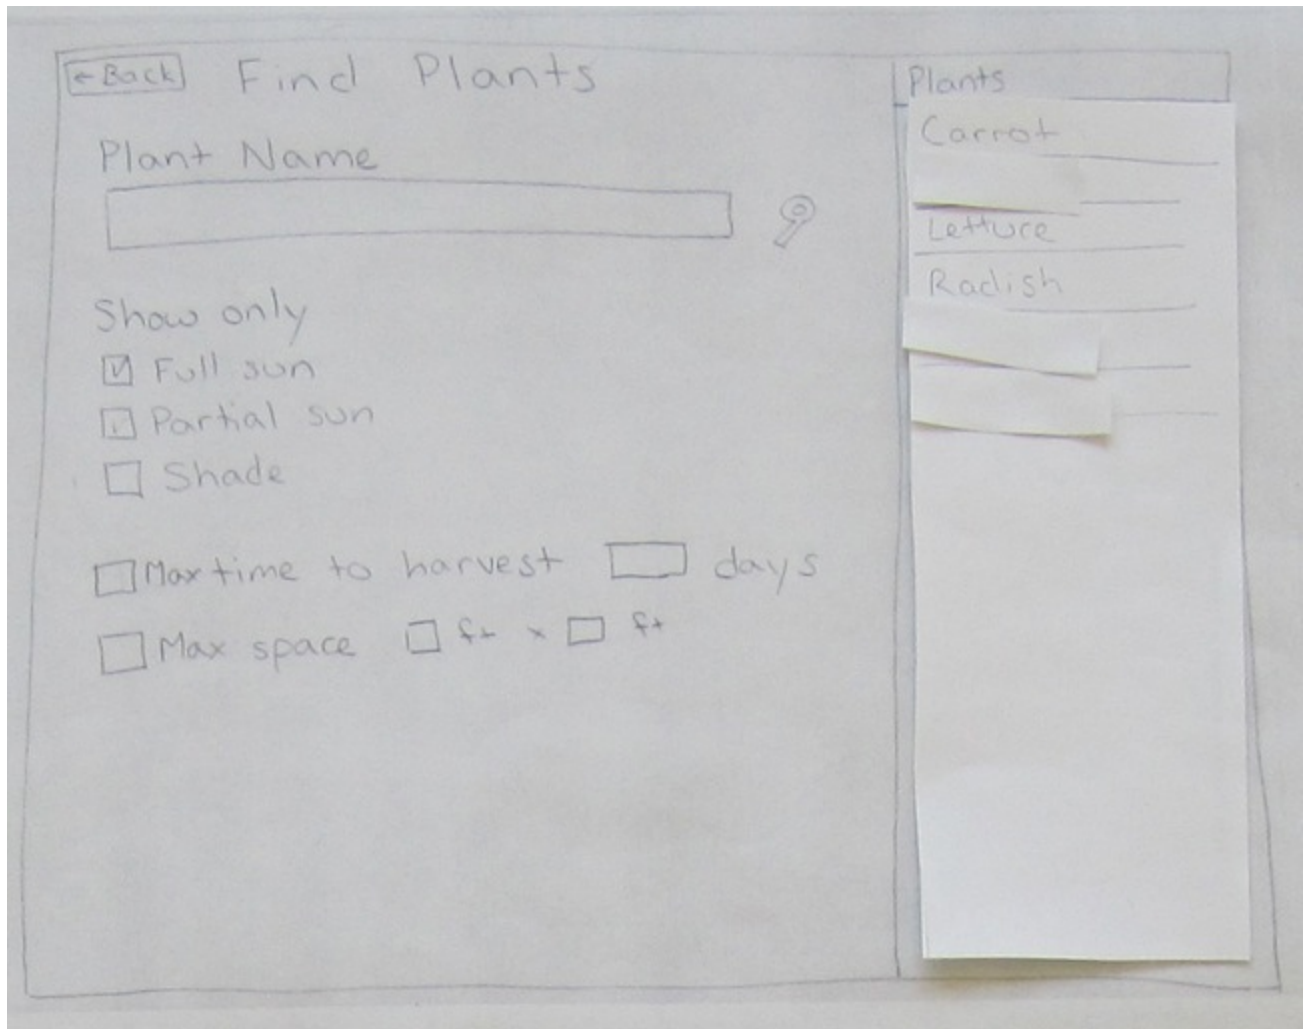 ← Back Find Plants
Plant Name
Show only
Full sun
Partial sun
Shade
Max time to harvest days
Max space ft x ft
Plants
Carrot
Lettuce
Radish